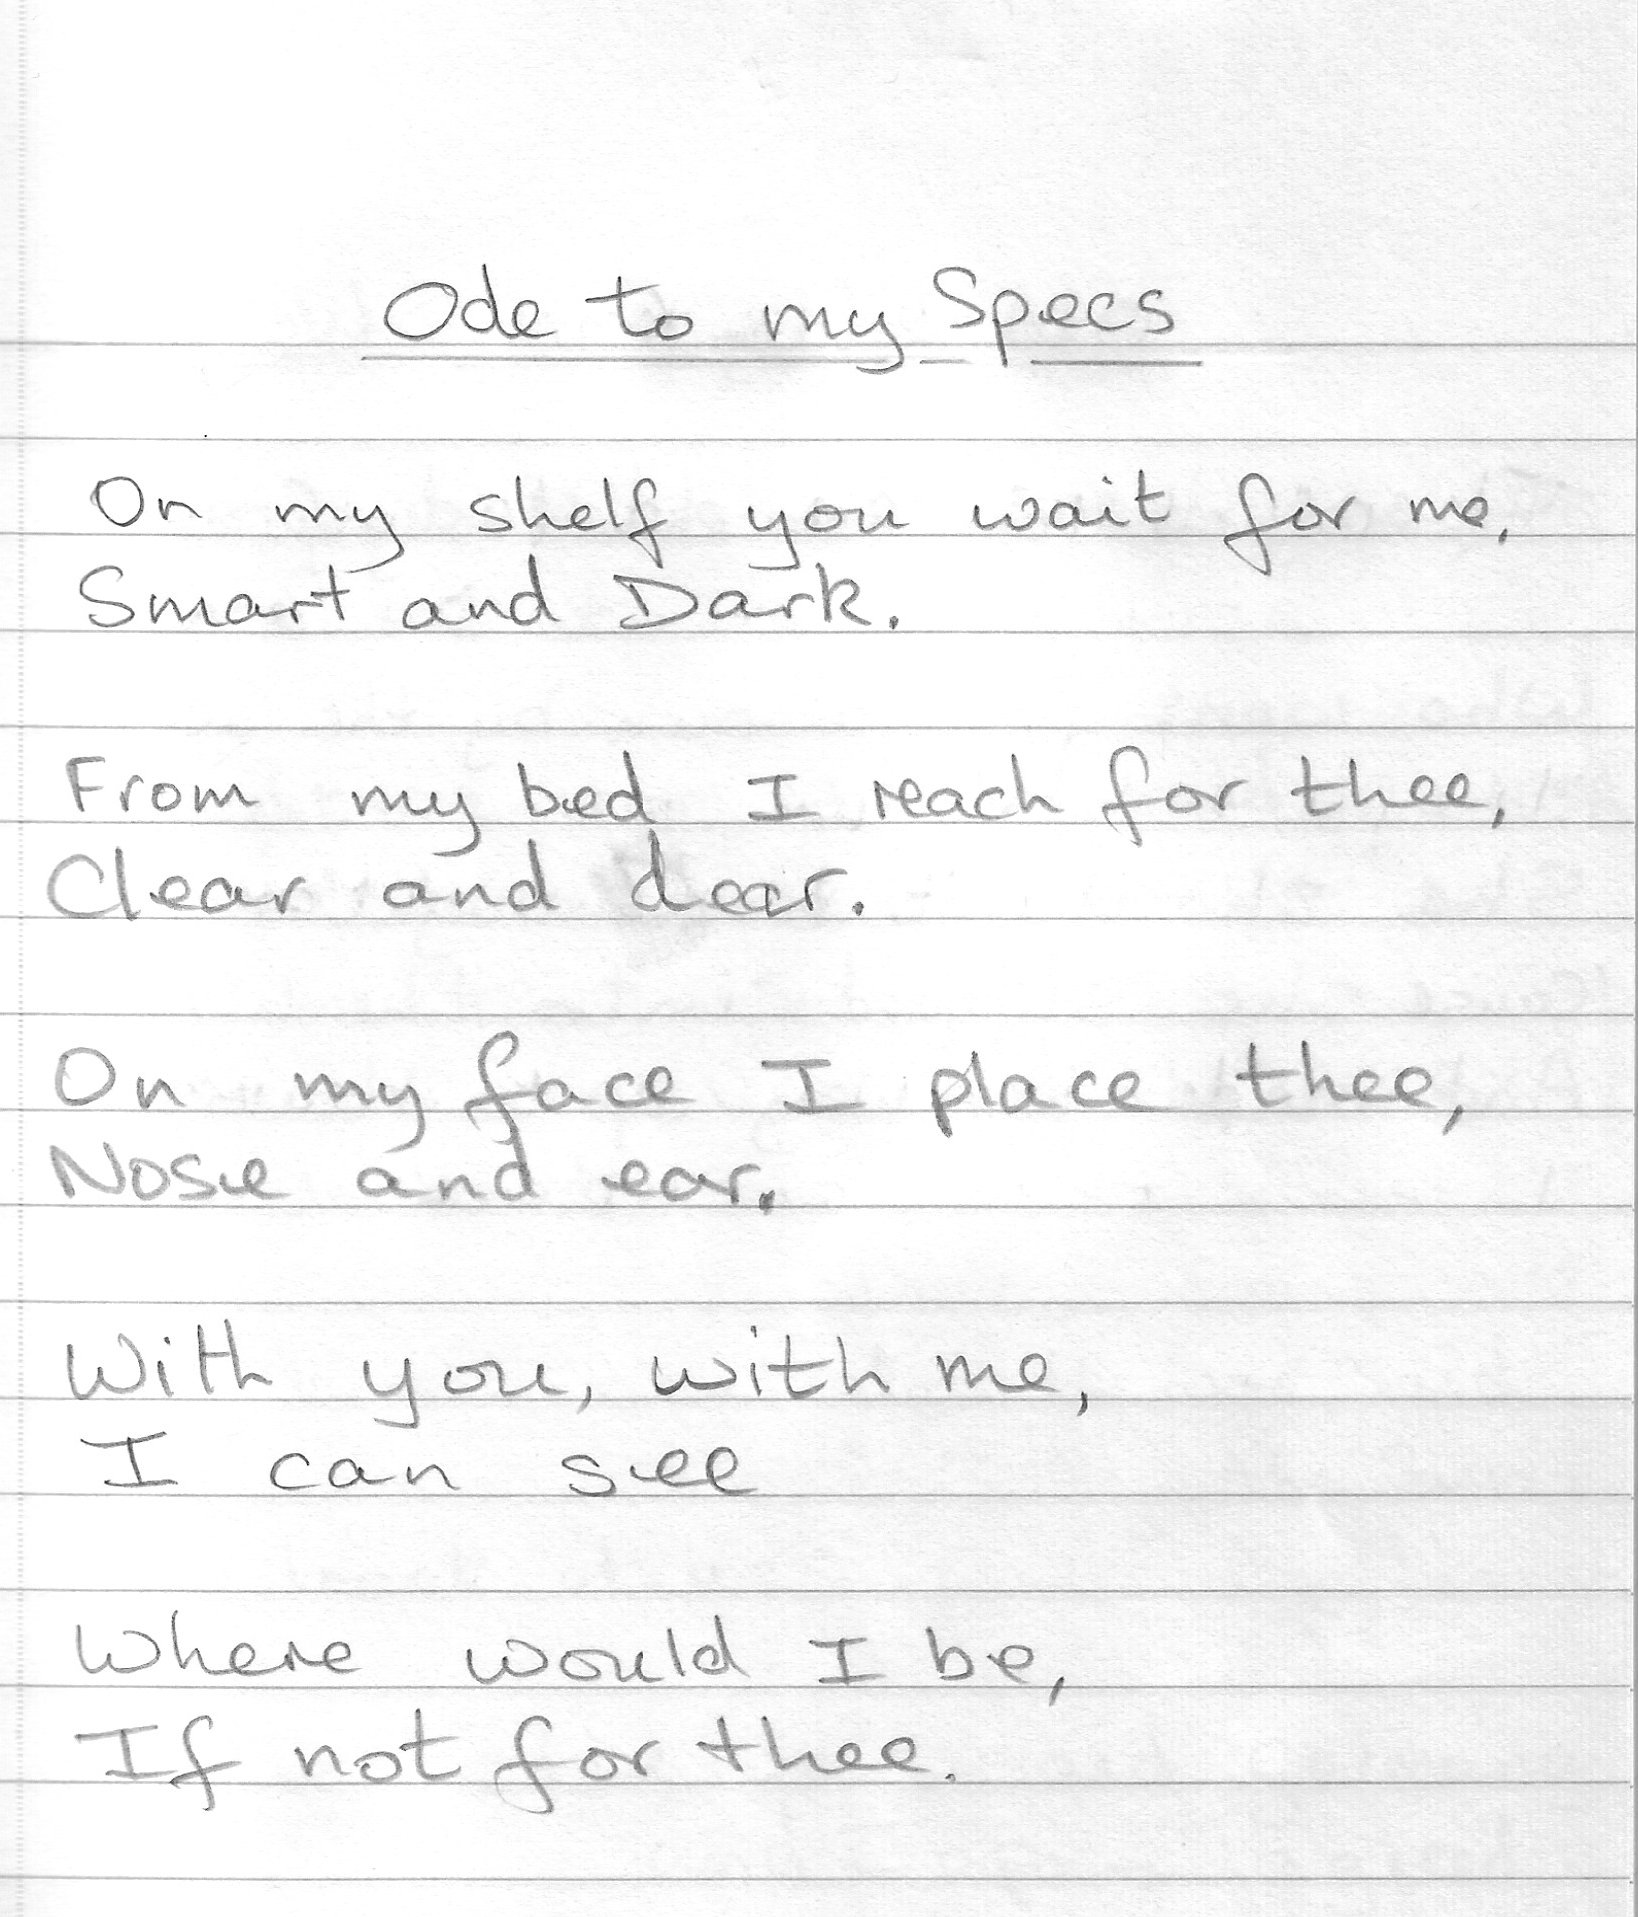 Ode to my Specs
On my shelf you wait for me,
Smart and Dark.
From my bed I reach for thee,
Clear and dear.
On my face I place thee,
Nose and ear.
With you, with me,
I can see
Where would I be,
If not for thee.